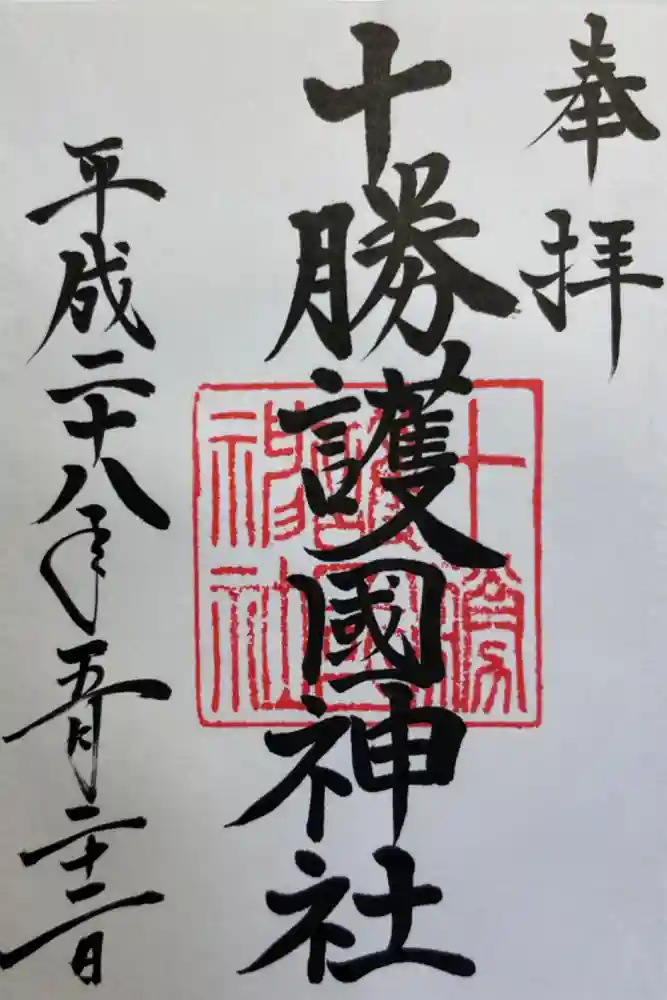 奉拝
十勝護國神社
十勝
護國
神社
平成二十八年五月二十二日